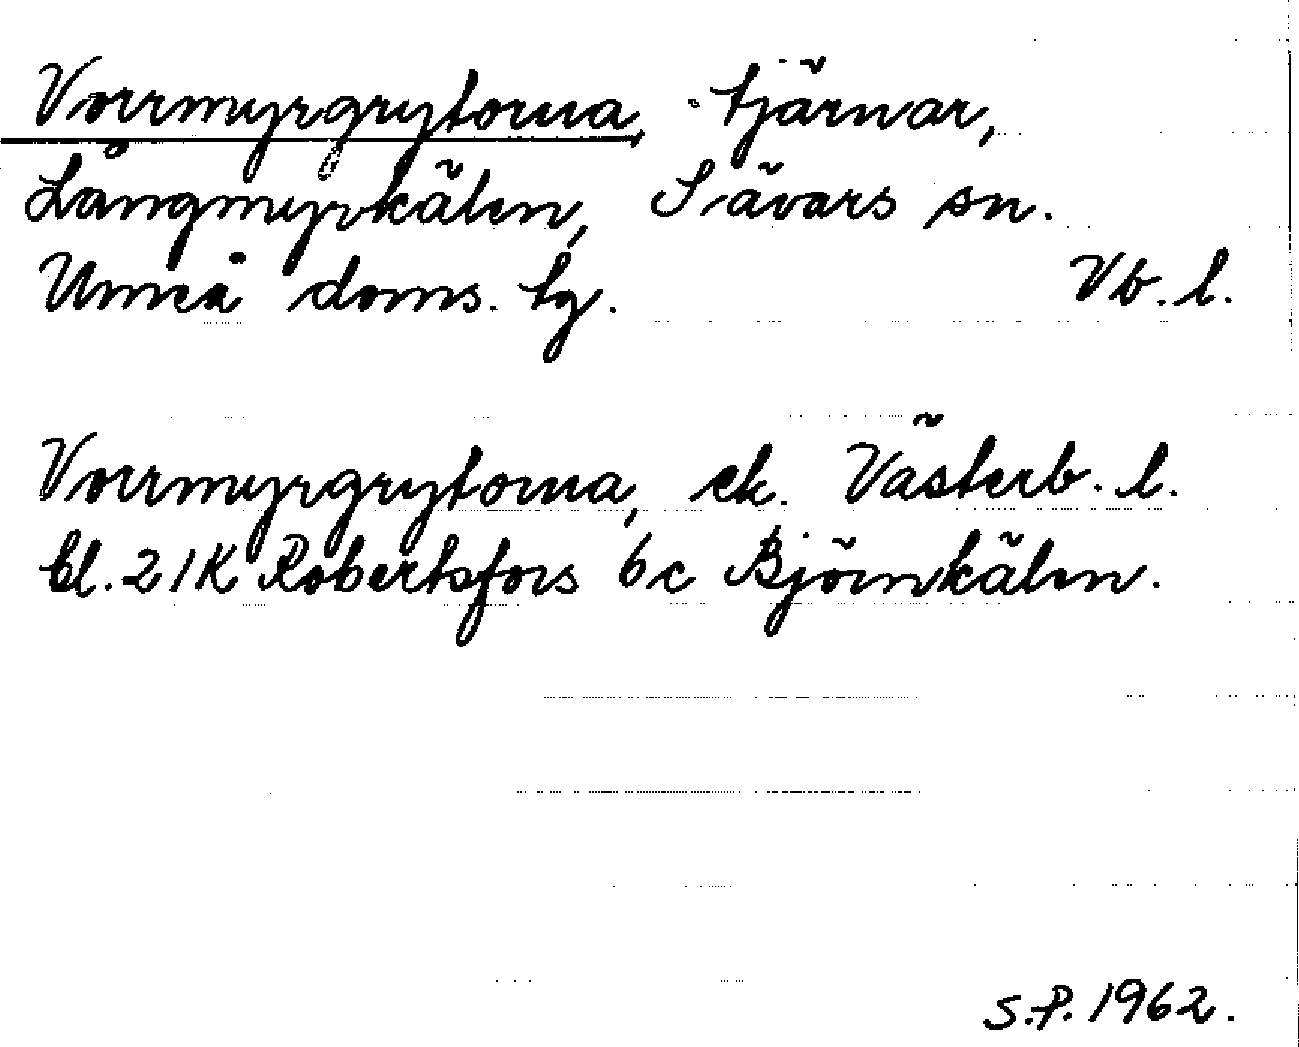 Vorrmyrgrytorna, tjärnar,
Långmyrkälen, Sävars sn.
Umeå doms. tg. Vb. l.
Vorrmyrgrytorna, ek. Västerb. l.
bl. 21K Robertsfors 6c Björnkälen.
S.P. 1962.